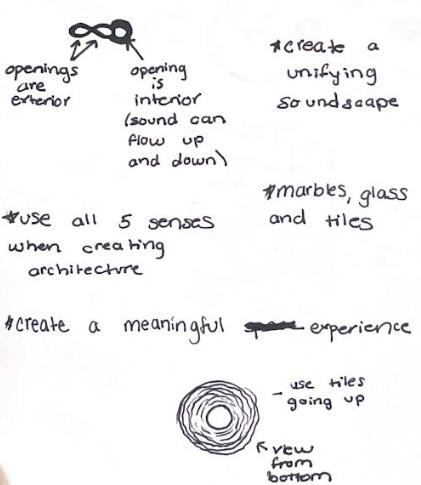 openings
are
exterior
opening
is
interior
(sound can
flow up
and down)
*create a
unifying
soundscape
*marbles, glass
and tiles
*use all 5 senses
when creating
architecture
*create a meaningful experience
- use tiles
going up
view
from
bottom